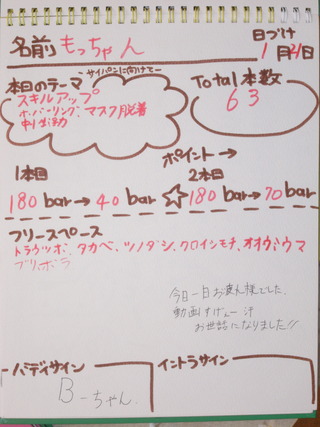 名前 もっちゃん
日づけ
1月21日
本日のテーマ
ーサイパンに向けてー
スキルアップ
ホバーリング、マスク脱着
中性浮力
Total本数
63
ポイント→
1本目
180bar→40bar
2本目
☆180bar→70bar
フリースペース
トラウツボ、タカベ、ツノダシ、クロイシモチ、オオウミウマ
ブリ、ボラ
今日一日お疲れ様でした。
動画すげぇー 汗
お世話になりました!!
バディサイン
B-ちゃん.
イントラサイン